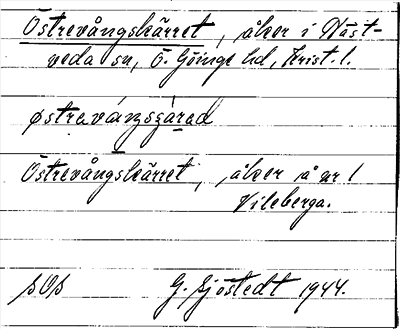 Östrevångskärret, åker i Näst-
veda sn, Ö. Göinge hd, Krist. l.
østreváŋsçárad
Östrevångskärret, åker å nr 1
Vileberga.
SOS
G. Sjöstedt 1944.